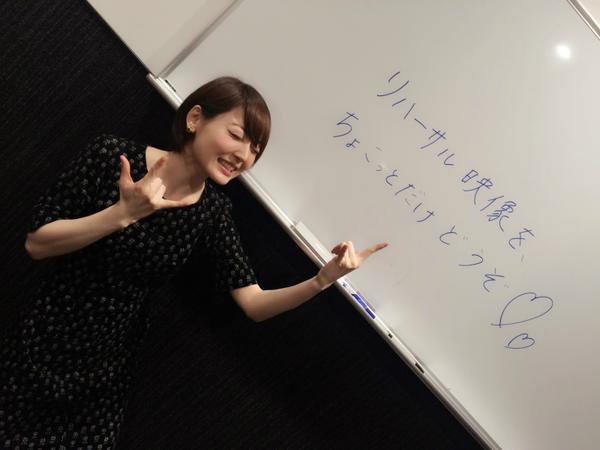 リハーサル映像を、
ちょこっとだけどうぞ♡♡